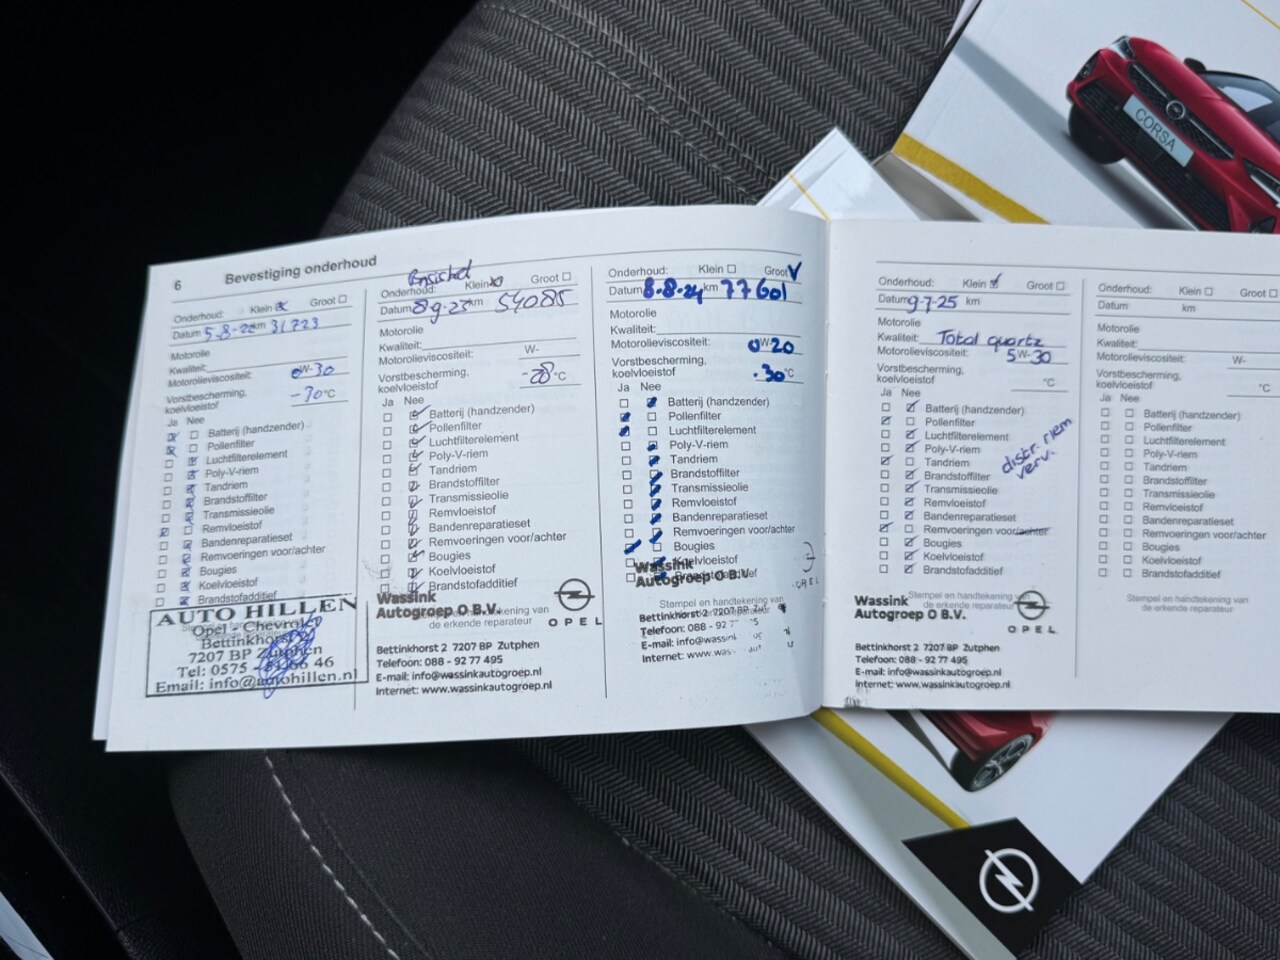 CORSA
6 Bevestiging onderhoud
Onderhoud: Klein Groot
Datum 5-8-22 km 31723
Motorolie
Kwaliteit:
Motorolieviscositeit: 0W-30
Vorstbescherming, koelvloeistof -30°C
Ja Nee
Batterij (handzender)
Pollenfilter
Luchtfilterelement
Poly-V-riem
Tandriem
Brandstoffilter
Transmissieolie
Remvloeistof
Bandenreparatieset
Remvoeringen voor/achter
Bougies
Koelvloeistof
Brandstofadditief
AUTO HILLEN
Opel - Chevrolet
Bettinkhorst 2
7207 BP Zutphen
Tel: 0575 - 66 46
Email: info@autohillen.nl
Onderhoud: Klein Groot
Datum 8-9-23 km 54085
Motorolie
Kwaliteit:
Motorolieviscositeit: W-
Vorstbescherming, koelvloeistof -28°C
Ja Nee
Batterij (handzender)
Pollenfilter
Luchtfilterelement
Poly-V-riem
Tandriem
Brandstoffilter
Transmissieolie
Remvloeistof
Bandenreparatieset
Remvoeringen voor/achter
Bougies
Koelvloeistof
Brandstofadditief
Stempel en handtekening van
de erkende reparateur
Wassink
Autogroep O B.V.
OPEL
Bettinkhorst 2 7207 BP Zutphen
Telefoon: 088 - 92 77 495
E-mail: info@wassinkautogroep.nl
Internet: www.wassinkautogroep.nl
Onderhoud: Klein Groot
Datum 8-8-24 km 77601
Motorolie
Kwaliteit:
Motorolieviscositeit: 0W-20
Vorstbescherming, koelvloeistof -30°C
Ja Nee
Batterij (handzender)
Pollenfilter
Luchtfilterelement
Poly-V-riem
Tandriem
Brandstoffilter
Transmissieolie
Remvloeistof
Bandenreparatieset
Remvoeringen voor/achter
Bougies
Koelvloeistof
Brandstofadditief
Wassink
Autogroep O B.V.
Stempel en handtekening van
de erkende reparateur
Bettinkhorst 2 7207 BP
Telefoon: 088 - 92
E-mail: info@wassink
Internet: www.was
Onderhoud: Klein Groot
Datum 9-7-25 km
Motorolie
Kwaliteit: Total quartz
Motorolieviscositeit: 5W-30
Vorstbescherming, koelvloeistof °C
Ja Nee
Batterij (handzender)
Pollenfilter
Luchtfilterelement
Poly-V-riem
Tandriem
distr. riem
verv.
Brandstoffilter
Transmissieolie
Remvloeistof
Bandenreparatieset
Remvoeringen voor/achter
Bougies
Koelvloeistof
Brandstofadditief
Stempel en handtekening van
de erkende reparateur
Wassink
Autogroep O B.V.
OPEL
Bettinkhorst 2 7207 BP Zutphen
Telefoon: 088 - 92 77 495
E-mail: info@wassinkautogroep.nl
Internet: www.wassinkautogroep.nl
Onderhoud: Klein Groot
Datum km
Motorolie
Kwaliteit:
Motorolieviscositeit: W-
Vorstbescherming, koelvloeistof °C
Ja Nee
Batterij (handzender)
Pollenfilter
Luchtfilterelement
Poly-V-riem
Tandriem
Brandstoffilter
Transmissieolie
Remvloeistof
Bandenreparatieset
Remvoeringen voor/achter
Bougies
Koelvloeistof
Brandstofadditief
Stempel en handtekening van
de erkende reparateur